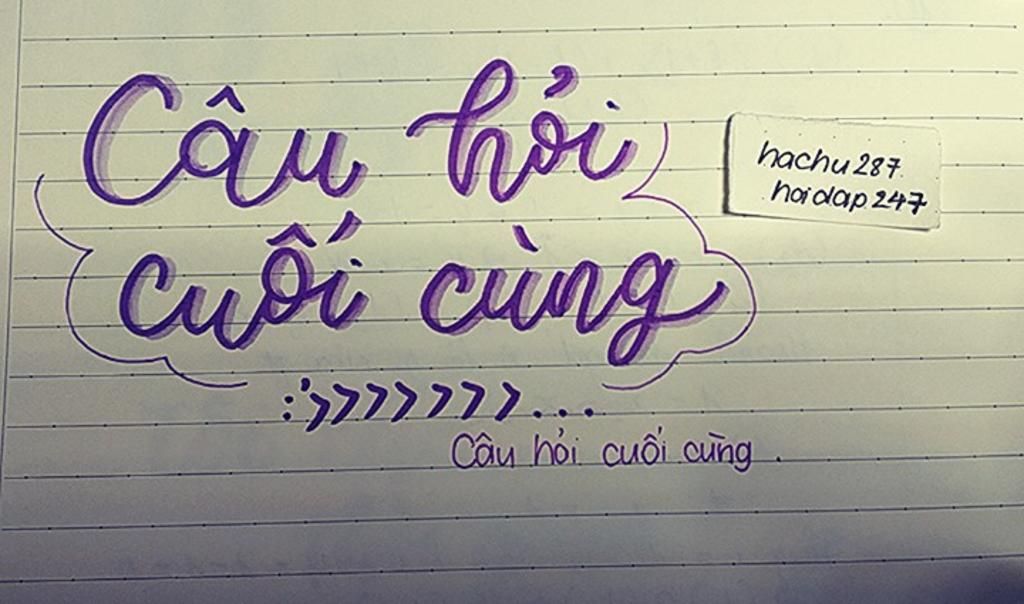 Câu hỏi
cuối cùng
hachu287
hoidap247
:'>>>>>>>...
Câu hỏi cuối cùng.